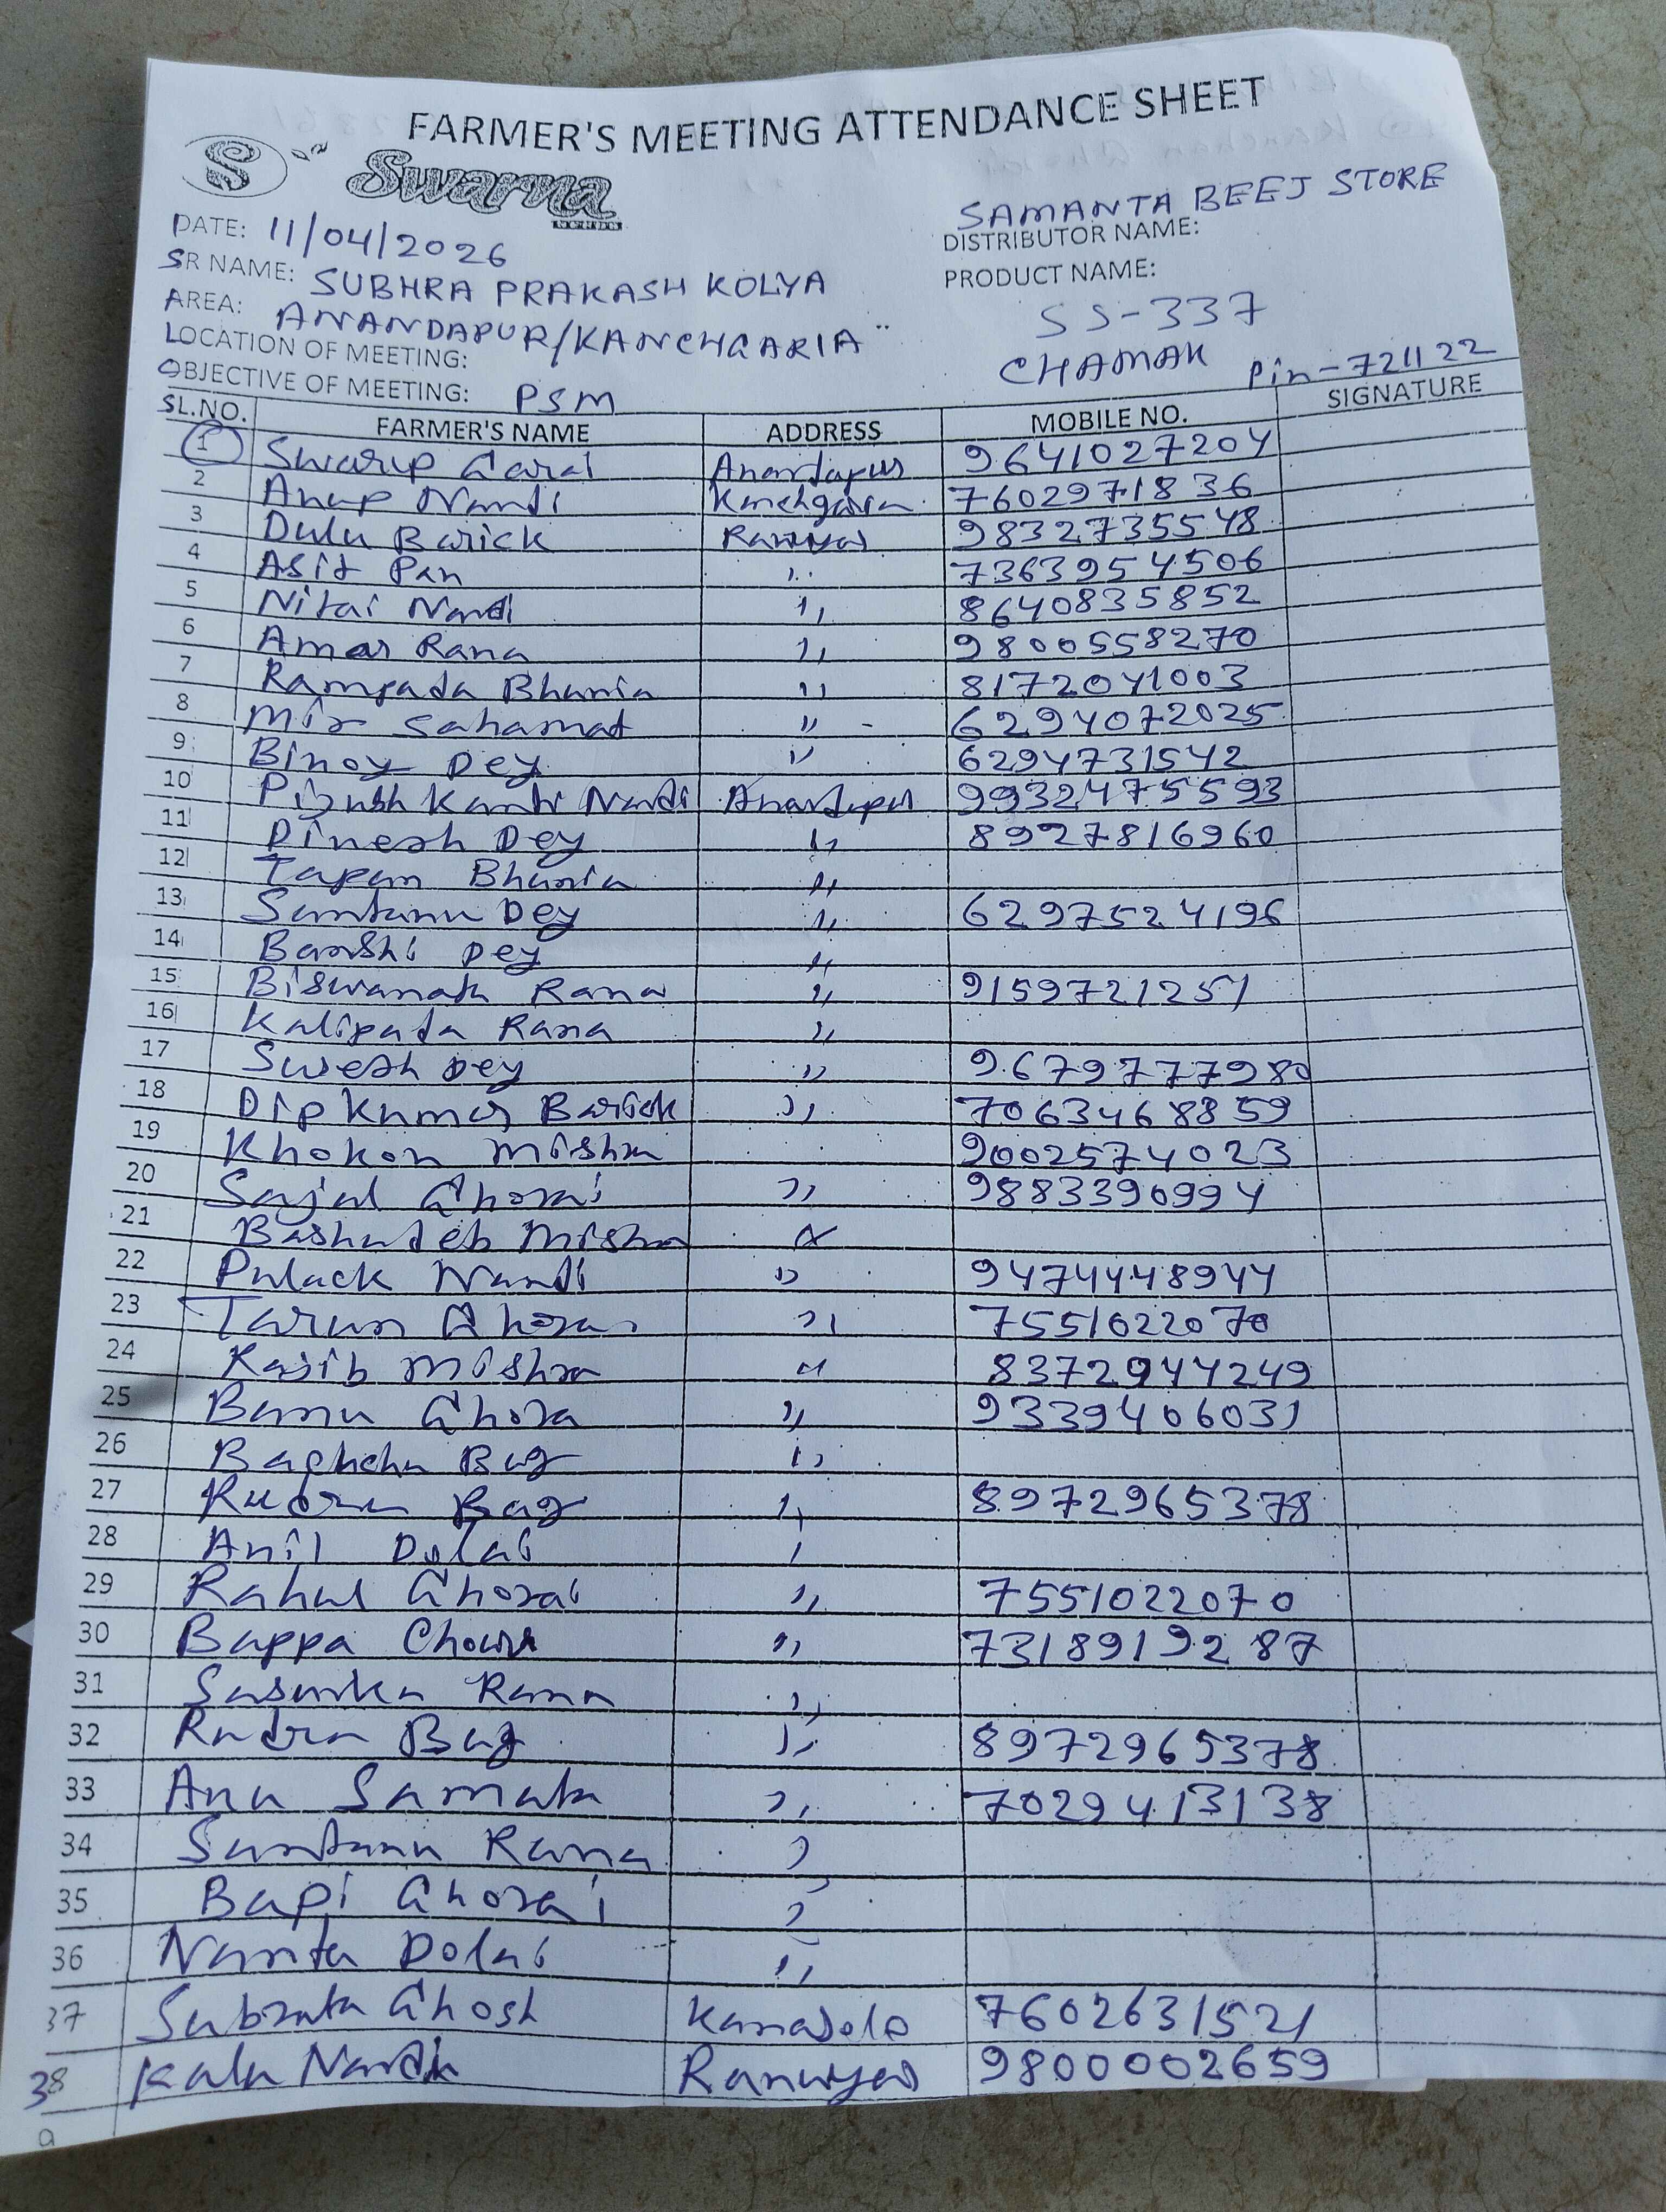 FARMER'S MEETING ATTENDANCE SHEET
S Swarna
SAMANTA BEEJ STORE
DATE: 11/04/2026
DISTRIBUTOR NAME:
SR NAME: SUBHRA PRAKASH KOLYA
PRODUCT NAME:
AREA: ANANDAPUR/KANCHGARIA
SS-337
LOCATION OF MEETING:
CHAMAK Pin-721122
OBJECTIVE OF MEETING: PSM
SL.NO. FARMER'S NAME ADDRESS MOBILE NO. SIGNATURE
1 Swarup Garai Anandapur 9641027204
2 Anup Nandi Kanchgaria 7602971836
3 Dulu Barick Ranuyar 9832735548
4 Asit Pan ,, 7363954506
5 Nitai Nandi ,, 8640835852
6 Amar Rana ,, 9800558270
7 Rampada Bhunia ,, 8172041003
8 Mir Sahamat ,, - 6294072025
9 Binoy Dey ,, 6294731542
10 Pijush Kanti Nandi Anandapur 9932475593
11 Dinesh Dey ,, 8927816960
12 Tapan Bhunia ,,
13 Santanu Dey ,, 6297524196
14 Banshi Dey ,,
15 Biswanath Rana ,, 9159721251
16 Kalipada Rana ,,
17 Suresh Dey ,, 9679777980
18 Dip Kumar Barick ,, 7063468859
19 Khokon Mishra 9002574023
20 Sajal Ghorai ,, 9883390994
21 Bashudeb Mishra ,,
22 Pulack Nandi ,, 9474448944
23 Tarun Ghorai ,, 7551022070
24 Rajib Mishra ,, 8372944249
25 Banu Ghora ,, 9339406031
26 Baghchu Bag ,,
27 Rudra Bag ,, 8972965378
28 Anil Dolai ,
29 Rahul Ghorai ,, 7551022070
30 Bappa Ghora ,, 7318919287
31 Sasanka Rana ,,
32 Rudra Bag ,, 8972965378
33 Anu Samata ,, 7029413138
34 Santanu Rana ,
35 Bapi Ghorai ,
36 Nanta Dolai ,,
37 Subrata Ghosh Kanasole 7602631521
38 Kalu Nandi Ranuyar 9800002659